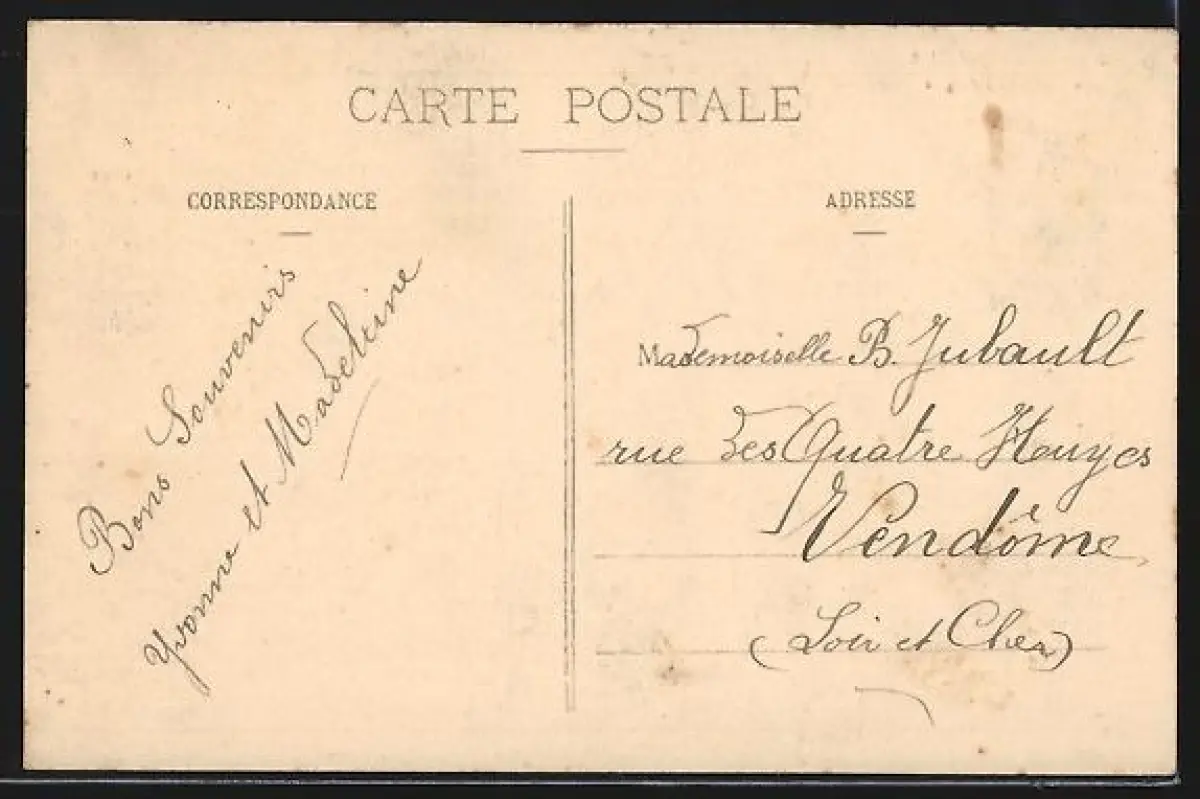 CARTE POSTALE
CORRESPONDANCE
Bons Souvenirs
Yvonne et Madeleine
ADRESSE
Mademoiselle B. Jubault
rue des Quatre Huyes
Vendôme
(Loir et Cher)